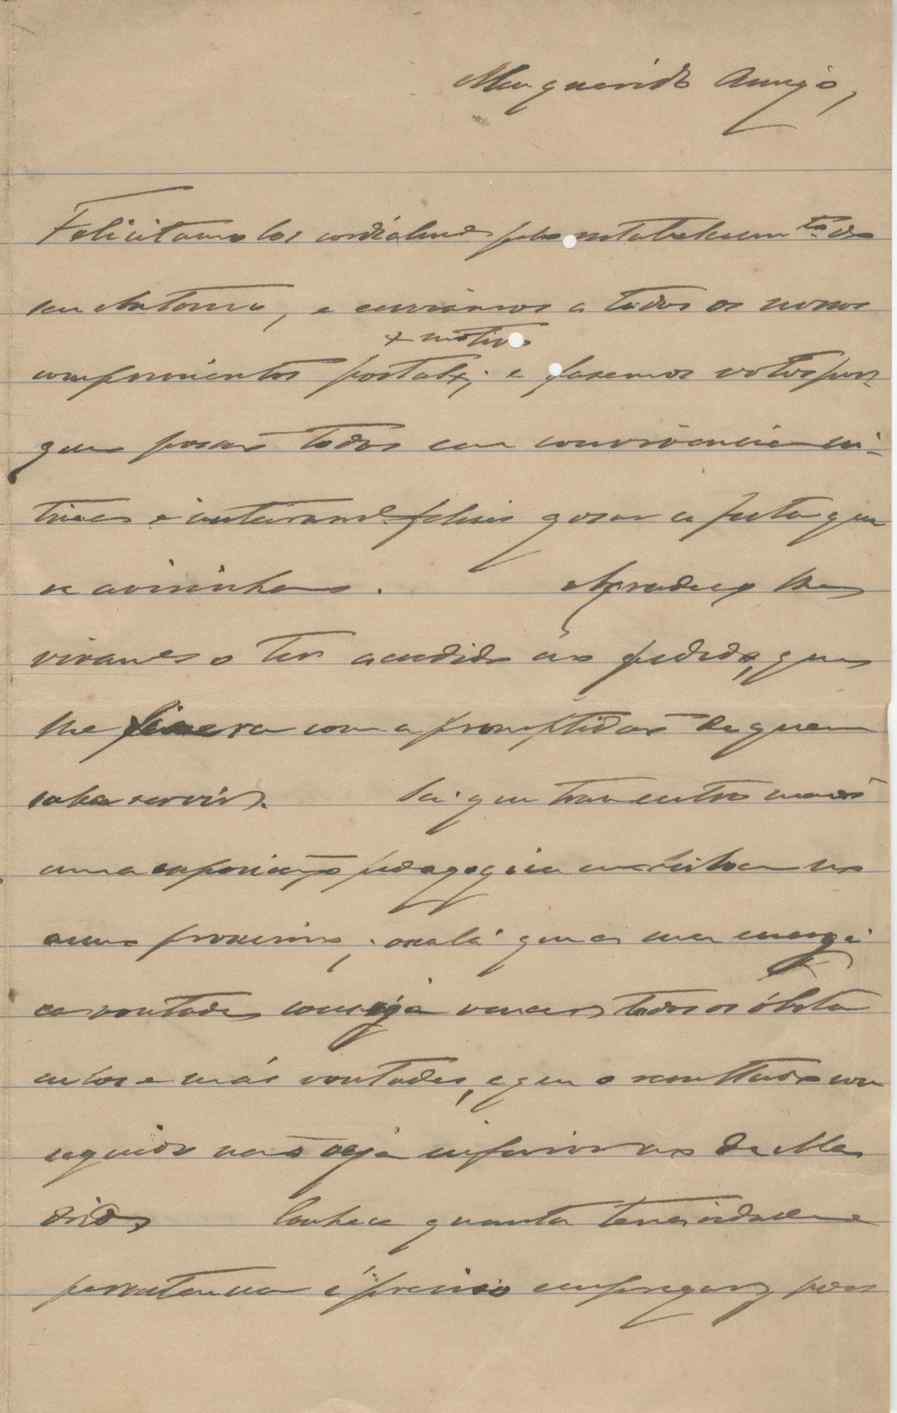 Meu querido Amigo,
Felicitamol-os cordialmente pelo restabelecim.to do
seu Antonio, e enviamos a todos os nossos
+ motivo
comprimentos por tal +; e fazemos votos por
que possam todos em convivencia in-
tima e inteiram.e felizes gosar a festa que
se avisinha. Agradeço lhe
vivam.e o ter accedido ao pedido, que
lhe fizera com a promptidão de quem
sabe servir. Sei que traz entre mãos
uma exposição pedagogica em Lisboa no
anno proximo; oxalá que a sua energi
ca vontade consiga vencer todos os obsta
culos e más vontades, e que o resultado con
seguido não seja inferior ao de Ma
drid. Conheço quanta tenacidade e
persistencia é preciso empregar p